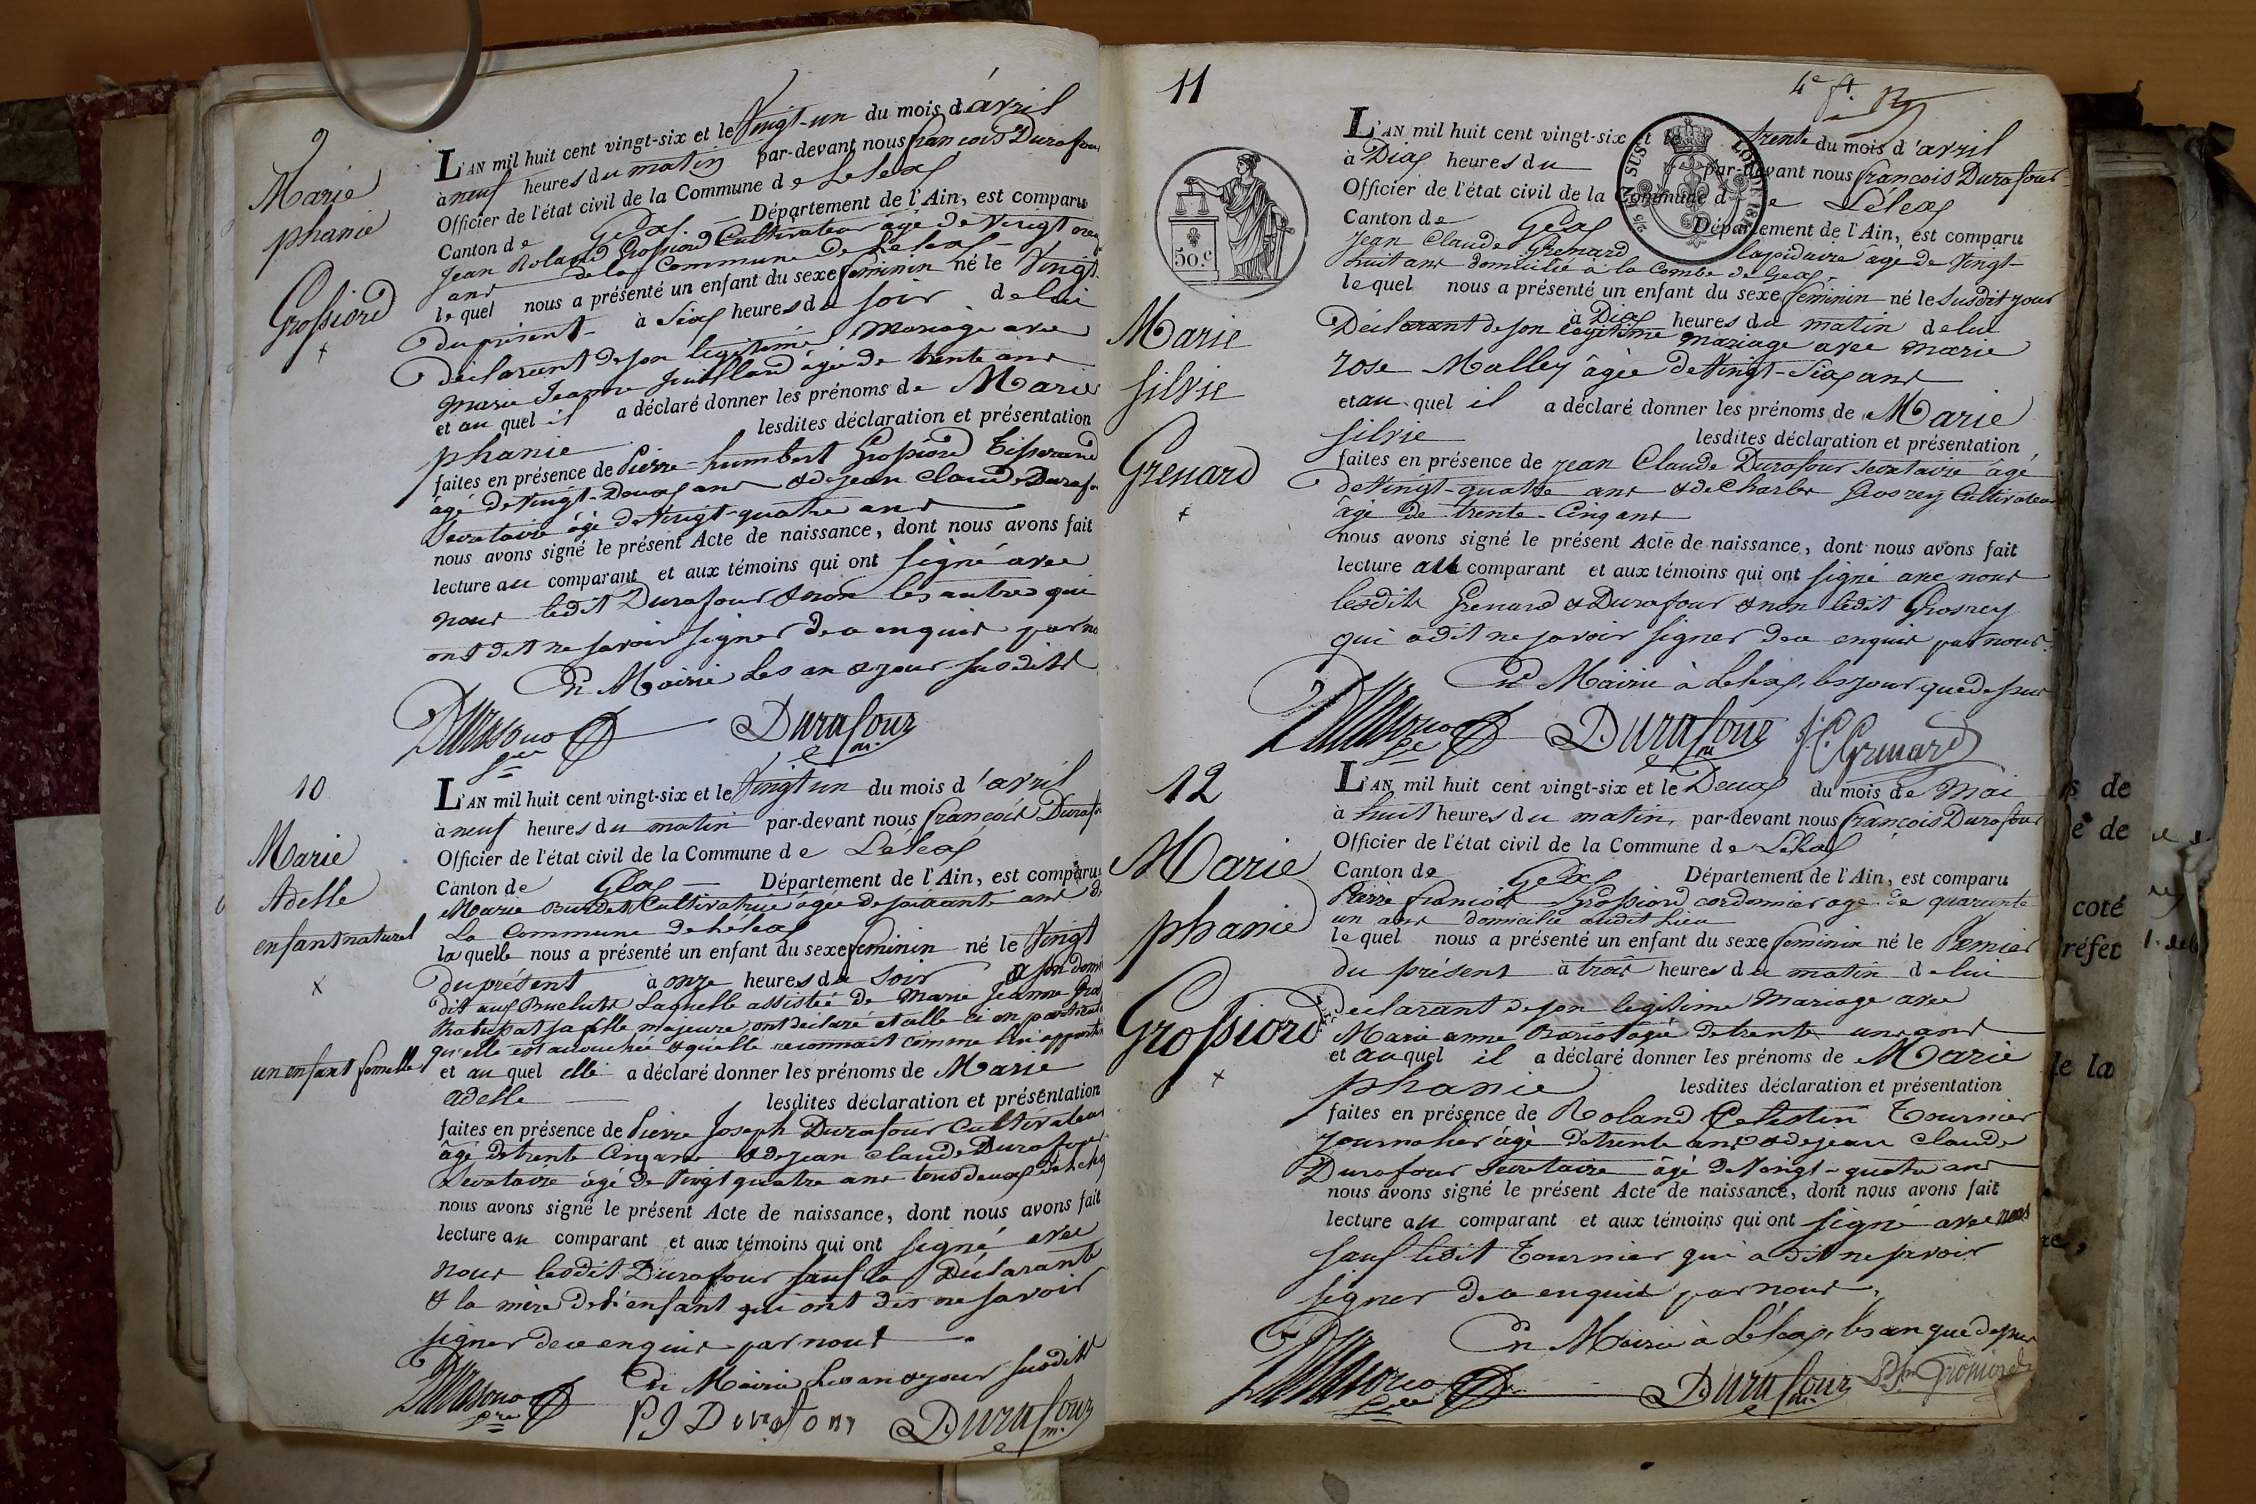 9
Marie
phanie
Grossiord
L'AN mil huit cent vingt-six et le Vingt-un du mois d'avril
à neuf heures du matin par-devant nous françois Durafour
Officier de l'état civil de la Commune de Lelex
Canton de Gex Département de l'Ain, est comparu
Jean Roland Grossiord Cultivateur âgé de Vingt
ans de la Commune de Lelex
lequel nous a présenté un enfant du sexe feminin né le Vingt
du présent à Six heures du soir de lui
déclarant de son légitime Mariage avec
Marie Jeanne Juilland âgée de trente ans
et au quel il a déclaré donner les prénoms de Marie
phanie lesdites déclaration et présentation
faites en présence de Pierre-humbert Grossiord Tisserand
âgé de Vingt-Deux ans & de jean Claude Durafour
Secretaire âgé de Vingt-quatre ans
nous avons signé le présent Acte de naissance, dont nous avons fait
lecture au comparant et aux témoins qui ont signé avec
nous ledit Durafour & non les autres qui
ont dit ne savoir signer de ce enquis par nous
En Mairie Les an & jour susdits
Durafour
10
Marie
Adelle
enfant naturel
un enfant femelle
L'AN mil huit cent vingt-six et le Vingt un du mois d'avril
à neuf heures du matin par-devant nous françois Durafour
Officier de l'état civil de la Commune de Léléx
Canton de Gex Département de l'Ain, est comparu
Marie Burdet Cultivatrice âgée de soixante ans de
La Commune de Lelex
laquelle nous a présenté un enfant du sexe feminin né le Vingt
du présent à onze heures du soir à son domi
Laquelle assistée de Marie Jeanne
sa fille majeure, ont déclaré
qu'elle est accouchée & qu'elle reconnait comme lui
et au quel elle a déclaré donner les prénoms de Marie
adelle lesdites déclaration et présentation
faites en présence de Pierre Joseph Durafour Cultivateur
âgé de trente cinq ans & de jean Claude Durafour
Secretaire âgé de Vingt quatre ans tous deux de Lelex
nous avons signé le présent Acte de naissance, dont nous avons fait
lecture au comparant et aux témoins qui ont signé avec
nous lesdit Durafour sauf la Déclarante
& la mère de l'enfant qui ont dit ne savoir
signer de ce enquis par nous
En Mairie Les an & jour susdits
P J Durafour Durafour
11
4e ft.
50.c
Marie
Silvie
Grenard
L'AN mil huit cent vingt-six et le trente du mois d'avril
à Dix heures du par-devant nous françois Durafour
Officier de l'état civil de la Commune de Lélex
Canton de Gex Département de l'Ain, est comparu
Jean Claude Grenard lapidaire âgé de Vingt-
huit ans domicilié à la Combe de Gex
lequel nous a présenté un enfant du sexe feminin né le susdit jour
à Dix heures du matin de lui
Déclarant de son légitime mariage avec marie
rose Malley âgée de Vingt-Six ans
et au quel il a déclaré donner les prénoms de Marie
Silvie lesdites déclaration et présentation
faites en présence de jean Claude Durafour secretaire âgé
de Vingt-quatre ans & de Charles Grosrey Cultivateur
âgé de trente-Cinq ans
nous avons signé le présent Acte de naissance, dont nous avons fait
lecture au comparant et aux témoins qui ont signé avec nous
lesdits Grenard & Durafour & non ledit Grosrey
qui a dit ne savoir signer de ce enquis par nous.
En Mairie à Lelex, les jour que dessus
Durafour J.C. Grenard
12
Marie
phanie
Grossiord
L'AN mil huit cent vingt-six et le Deux du mois de Mai
à huit heures du matin, par-devant nous françois Durafour
Officier de l'état civil de la Commune de Lélex
Canton de Gex Département de l'Ain, est comparu
Pierre françois Grossiord cordonnier âgé de quarante
un ans domicilié audit lieu
lequel nous a présenté un enfant du sexe feminin né le Premier
du présent à trois heures du matin de lui
déclarant de son légitime Mariage avec
Marie anne âgée de trente un ans
et au quel il a déclaré donner les prénoms de Marie
phanie lesdites déclaration et présentation
faites en présence de Roland Celestin Tournier
journalier âgé de trente ans & de jean Claude
Durafour Secretaire âgé de Vingt-quatre ans
nous avons signé le présent Acte de naissance, dont nous avons fait
lecture au comparant et aux témoins qui ont signé avec nous
sauf ledit Tournier qui a dit ne savoir
signer de ce enquis par nous.
En Mairie à Lélex, les an que dessus
Durafour Grossiord
de
de
coté
réfet
de la